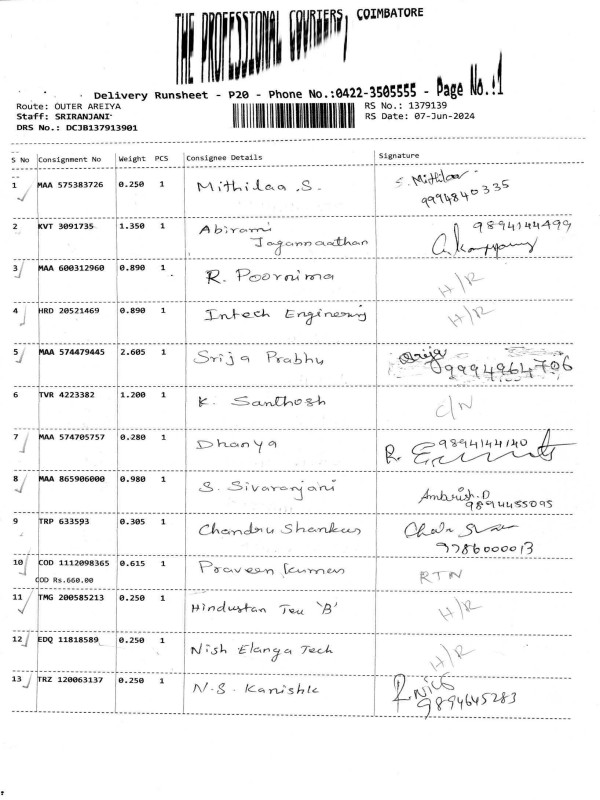 THE PROFESSIONAL COURIERS, COIMBATORE
Delivery Runsheet - P20 - Phone No.:0422-3505555 - Page No.:1
Route: OUTER AREIYA RS No.: 1379139
Staff: SRIRANJANI RS Date: 07-Jun-2024
DRS No.: DCJB137913901
S No Consignment No Weight PCS Consignee Details Signature
1 MAA 575383726 0.250 1 Mithilaa .S. S. Mithilaa
9994840335
2 KVT 3091735 1.350 1 Abirami 9894144499
Jagannaathan
3 MAA 600312960 0.890 1 R. Poornima H/R
4 HRD 20521469 0.890 1 Intech Engineering H/R
5 MAA 574479445 2.605 1 Srija Prabhu Srija
9994964706
6 TVR 4223382 1.200 1 K. Santhosh C/N
7 MAA 574705757 0.280 1 Dhanya 9894144140
R.
8 MAA 865906000 0.980 1 S. Sivaranjani Ambrish.D
9894455095
9 TRP 633593 0.305 1 Chandru Shankar
9786000013
10 COD 1112098365 0.615 1 Praveen kumar RTN
COD Rs.660.00
11 TMG 200585213 0.250 1 Hindustan Tex 'B' H/R
12 EDQ 11818589 0.250 1 Nish Elanga Tech H/R
13 TRZ 120063137 0.250 1 N.S. Kanishk
9894645283